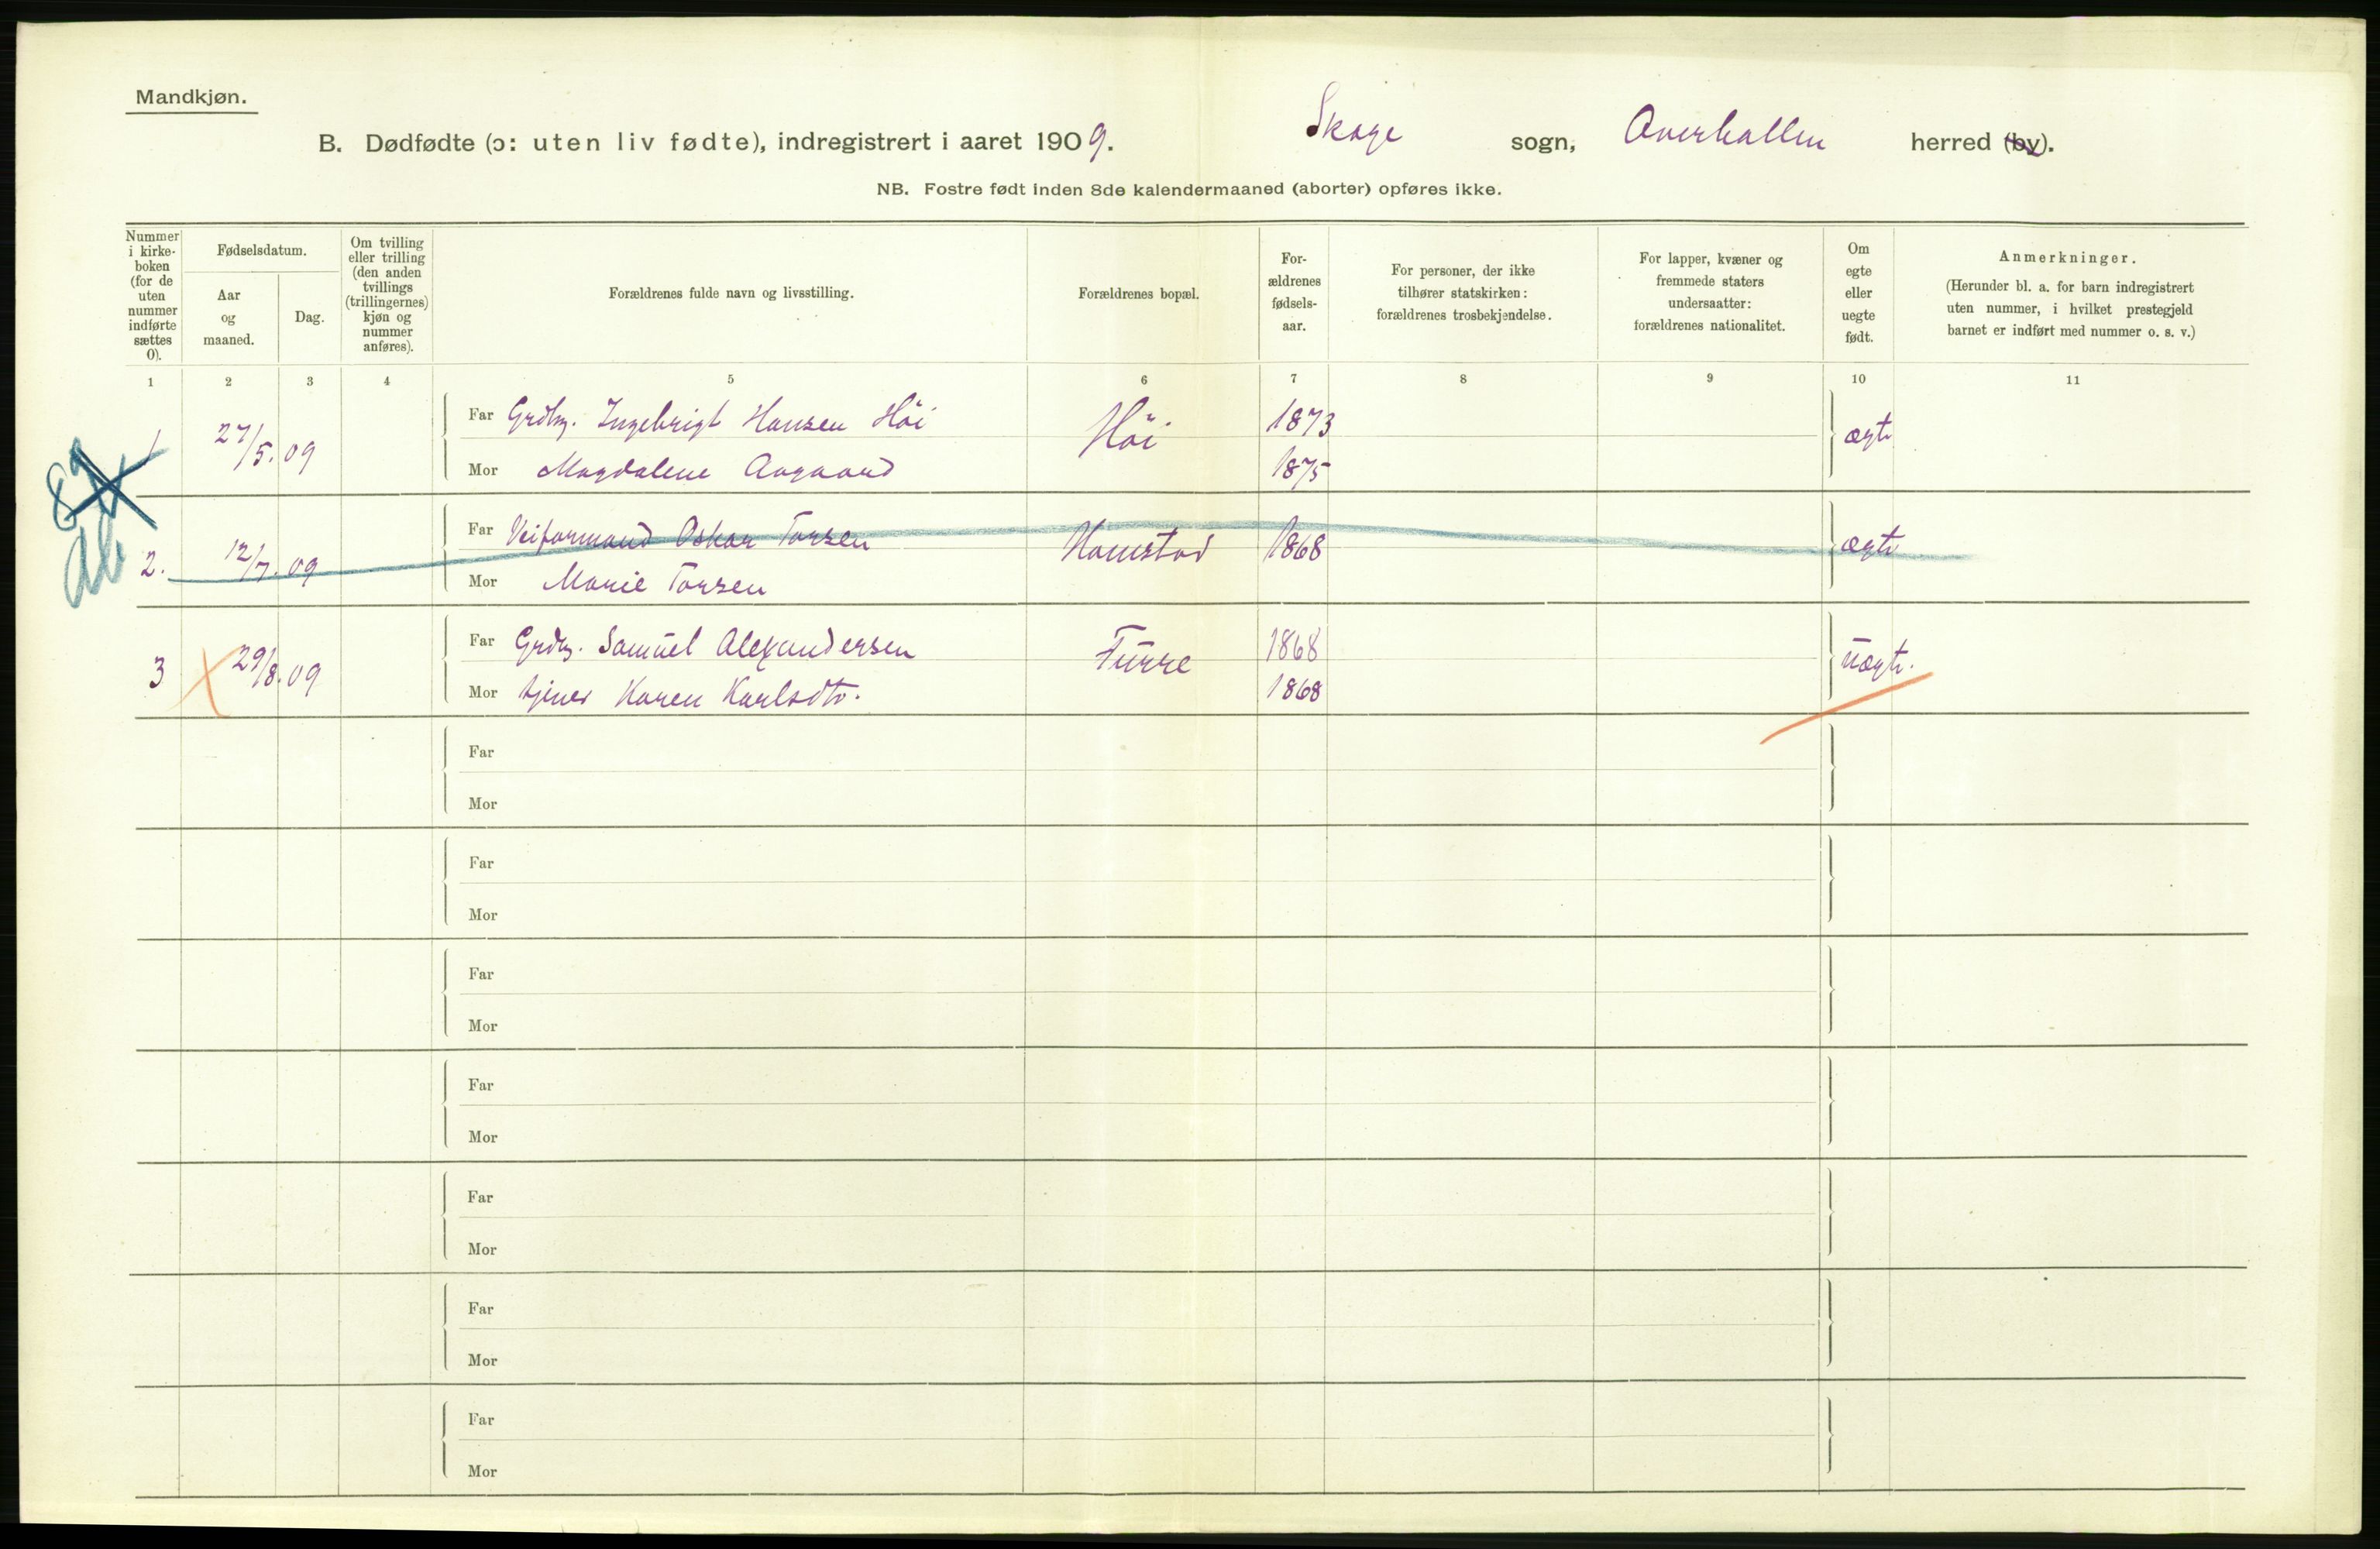 Mandkjøn.
B. Dødfødte (ɔ: uten liv fødte), indregistrert i aaret 1909. Skage sogn, Overhallen herred (by).
NB. Fostre født inden 8de kalendermaaned (aborter) opføres ikke.
Nummer i kirke-boken (for de uten nummer indførte sættes 0).
Fødselsdatum.
Aar og maaned.
Dag.
Om tvilling eller trilling (den anden tvillings (trillingernes) kjøn og nummer anføres).
Forældrenes fulde navn og livsstilling.
Forældrenes bopæl.
For-ældrenes fødsels-aar.
For personer, der ikke tilhører statskirken: forældrenes trosbekjendelse.
For lapper, kvæner og fremmede staters undersaatter: forældrenes nationalitet.
Om egte eller uegte født.
Anmerkninger.
(Herunder bl. a. for barn indregistrert uten nummer, i hvilket prestegjeld barnet er indført med nummer o. s. v.)
1 2 3 4 5 6 7 8 9 10 11
1 27/5.09 Far Grdbr. Ingebrigt Hansen Höi Höi 1873 ægte
Mor Magdalene Aagaard 1875
2. 12/7.09 Far Veiformand Oskar Torsen Hamstad 1868 ægte
Mor Marie Torsen
3 29/8.09 Far Grdbr. Samuel Alexandersen Furre 1868 uægte.
Mor tjener Karen Karlsdtr. 1868
Far
Mor
Far
Mor
Far
Mor
Far
Mor
Far
Mor
Far
Mor
Far
Mor